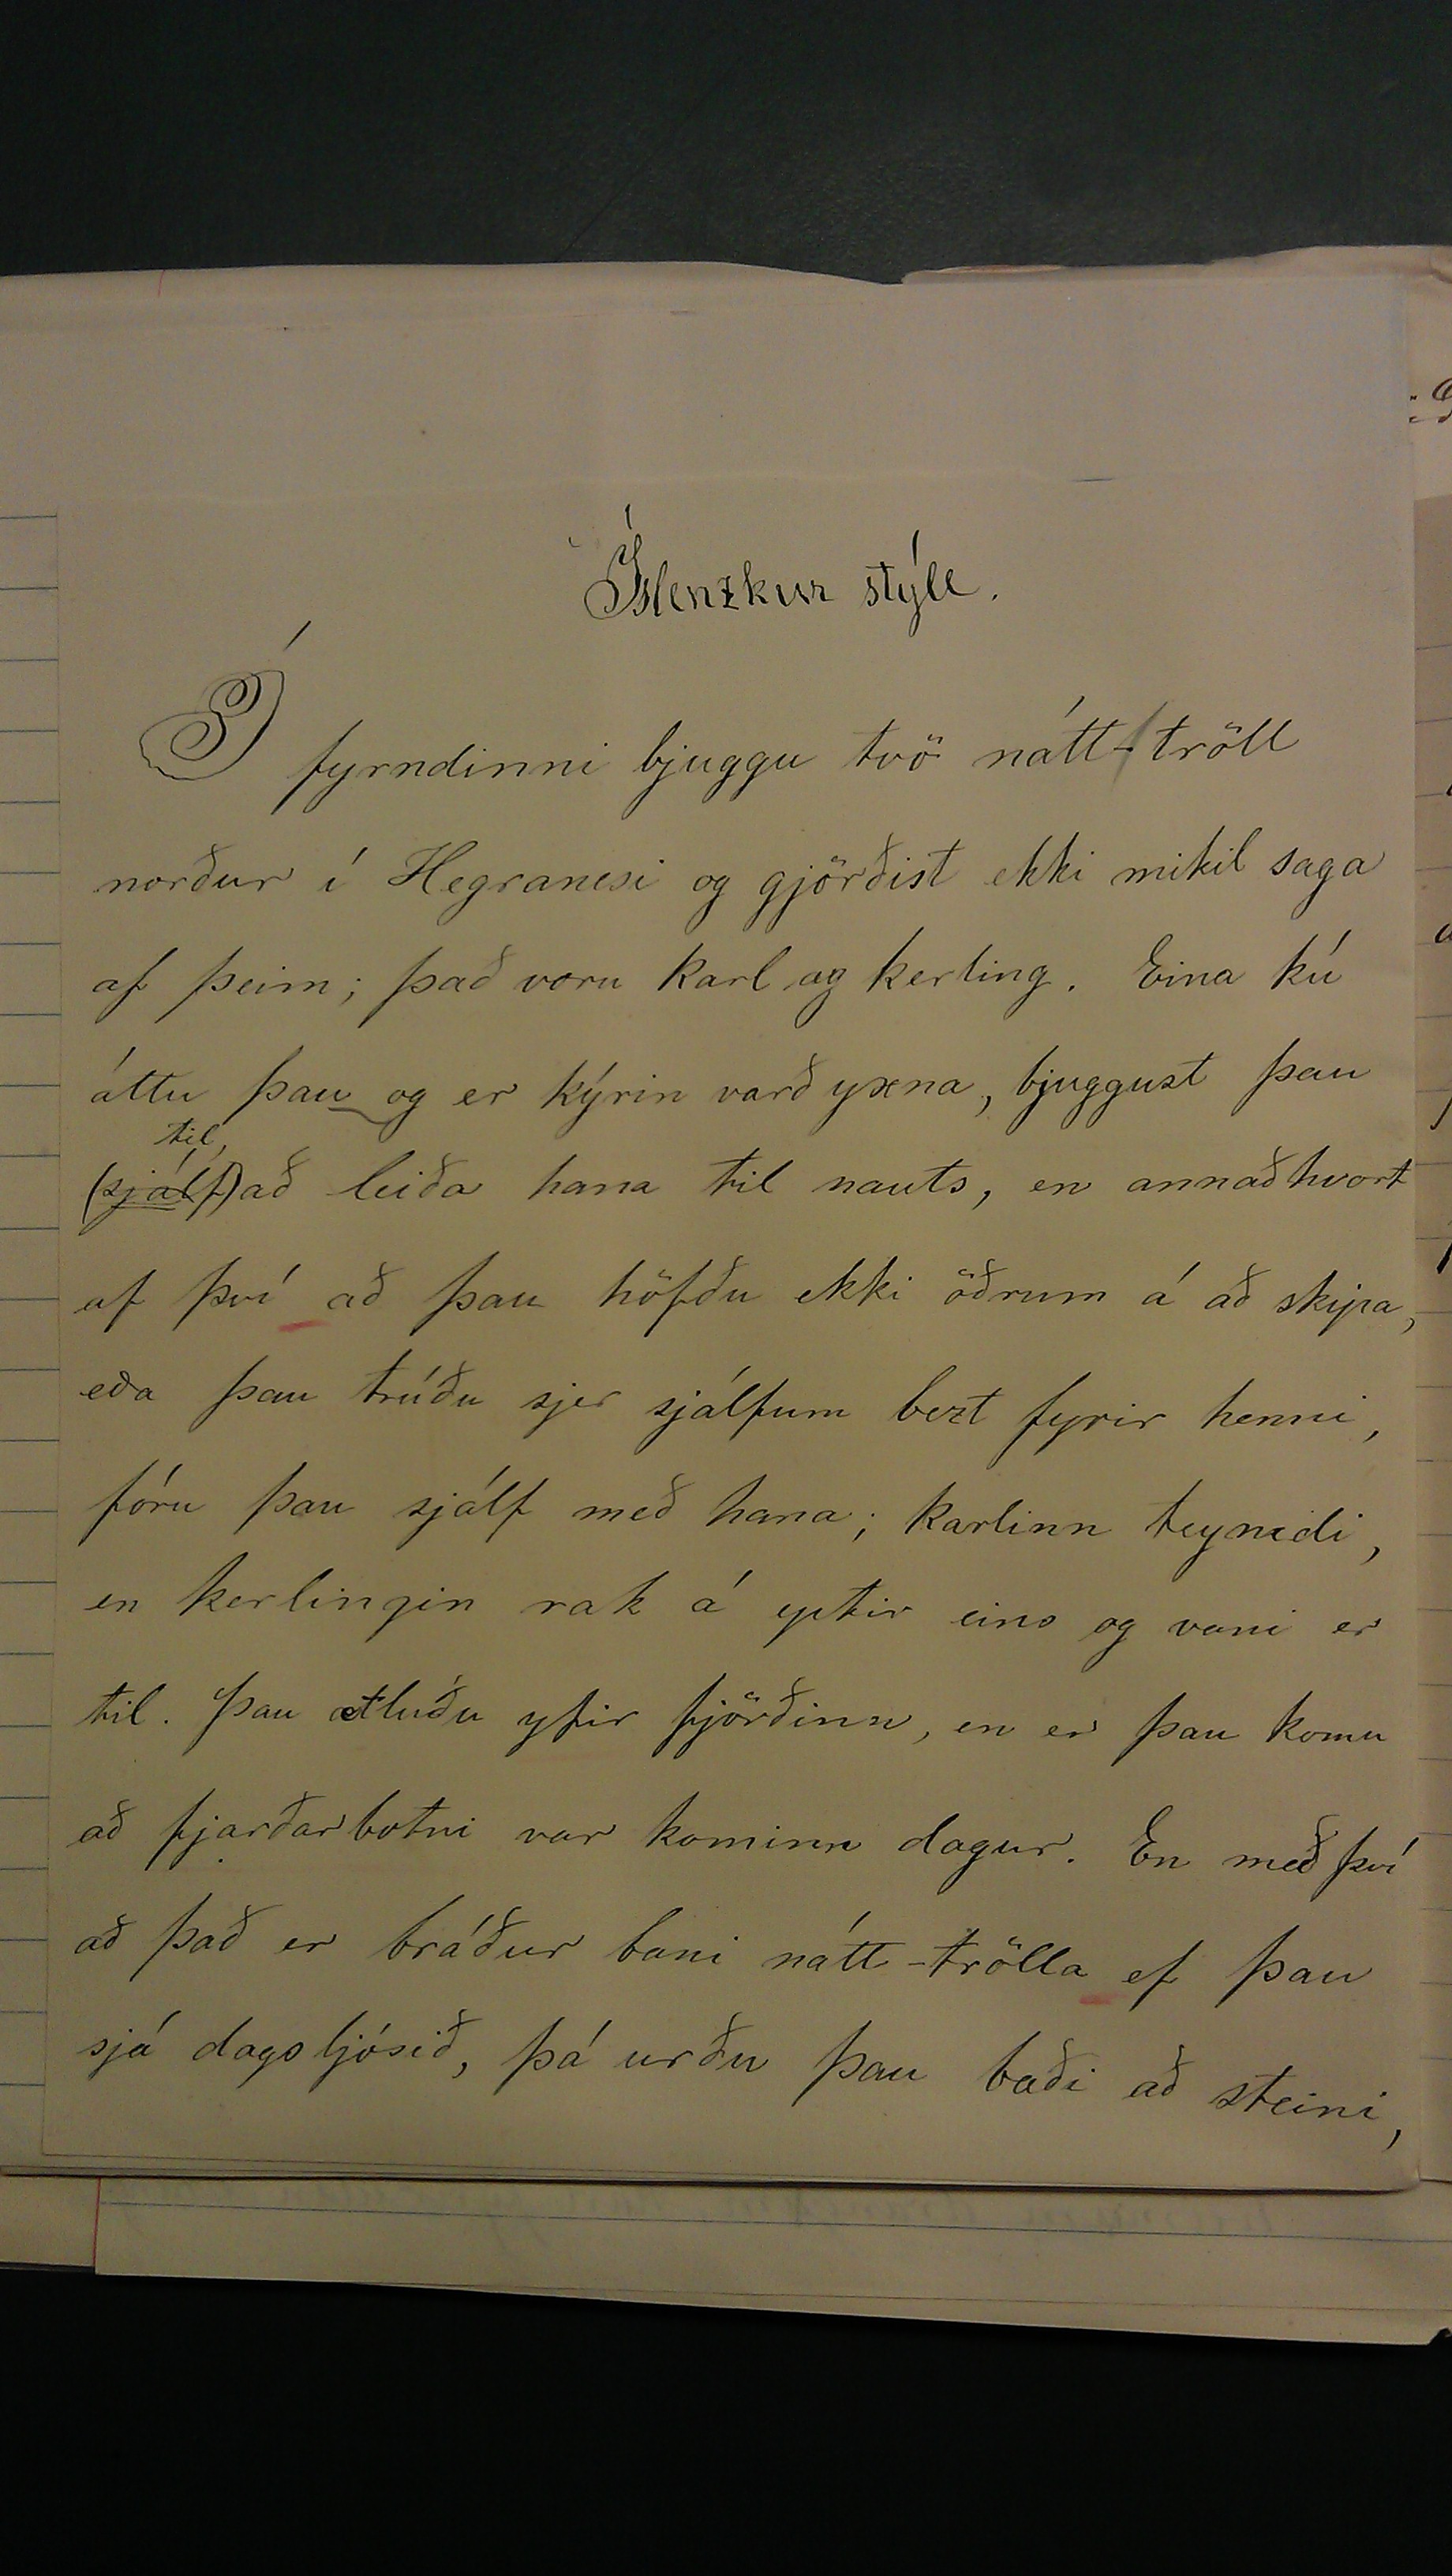 Íslenzkur stýll.
Í fyrndinni bjuggu tvö nátt-tröll
norður í Hegranesi og gjörðist ekki mikil saga
af þeim; það voru karl og kerling. Eina kú
áttu þau og er kýrin varð yxna, bjuggust þau
til
(sjálf) að leiða hana til nauts, en annaðhvort
af því að þau höfðu ekki öðrum á að skipa,
eða þau trúðu sjer sjálfum bezt fyrir henni,
fóru þau sjálf með hana; karlinn teymdi,
en kerlingin rak á eptir eins og vani er
til. Þau ætluðu yfir fjörðinn, en er þau komu
að fjarðarbotni var kominn dagur. En með því
að það er bráður bani nátt-trölla ef þau
sjá dagsljósið, þá urðu þau bæði að steini,